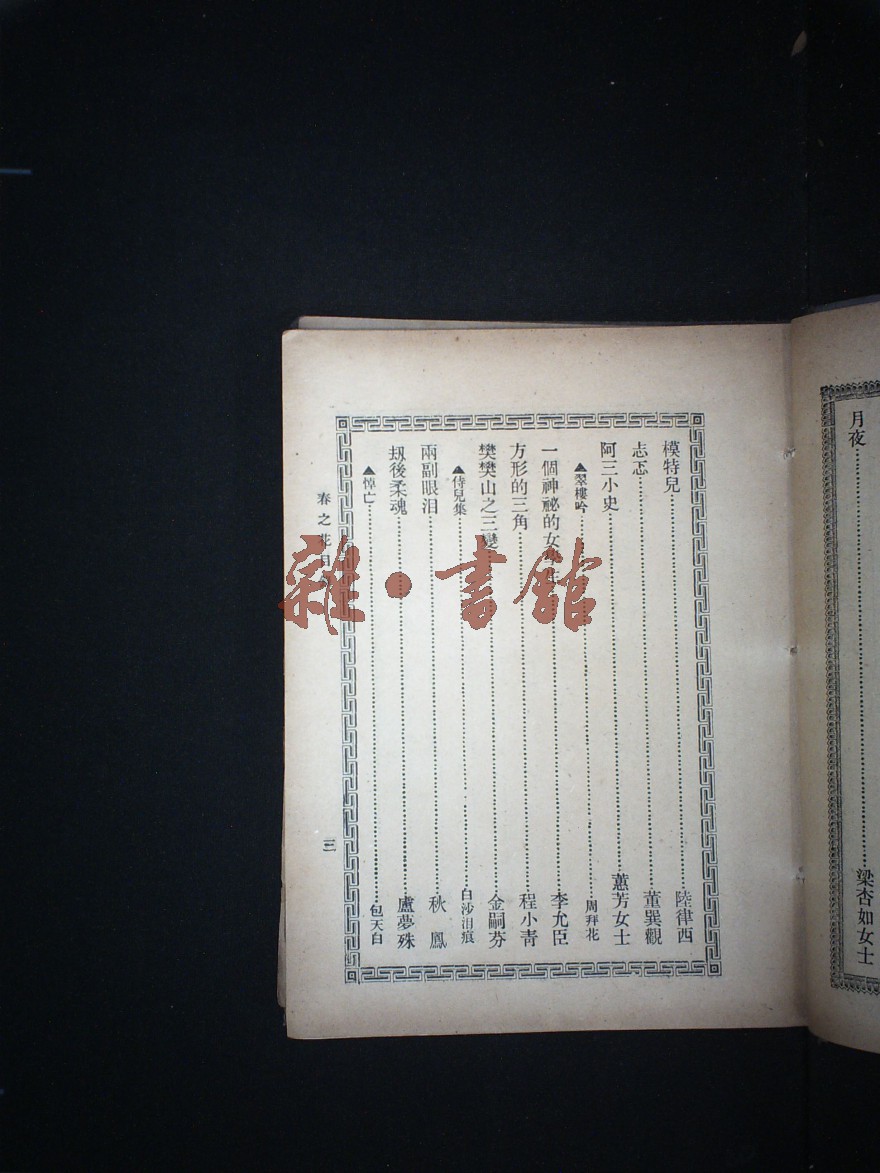 月夜 梁杏如女士
模特兒 陸律西
忐忑 董巽觀
阿三小史 蕙芳女士
▲翠樓吟 周拜花
一個神祕的女 李允臣
方形的三角 程小靑
樊樊山之三變 金嗣芬
▲侍兒集 白沙泪痕
兩副眼泪 秋鳳
刼後柔魂 盧夢殊
▲悼亡 包天白
春之花目
三
雜·書館